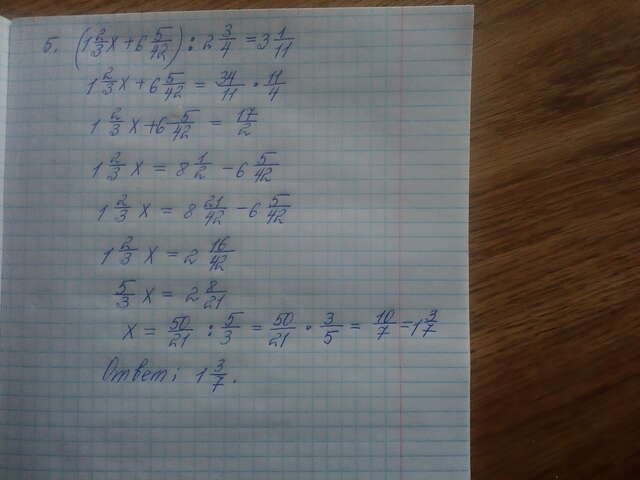 5. (1 2/3 x + 6 5/42) : 2 3/4 = 3 1/11
1 2/3 x + 6 5/42 = 34/11 · 11/4
1 2/3 x + 6 5/42 = 17/2
1 2/3 x = 8 1/2 - 6 5/42
1 2/3 x = 8 21/42 - 6 5/42
1 2/3 x = 2 16/42
5/3 x = 2 8/21
x = 50/21 : 5/3 = 50/21 · 3/5 = 10/7 = 1 3/7
Ответ: 1 3/7.